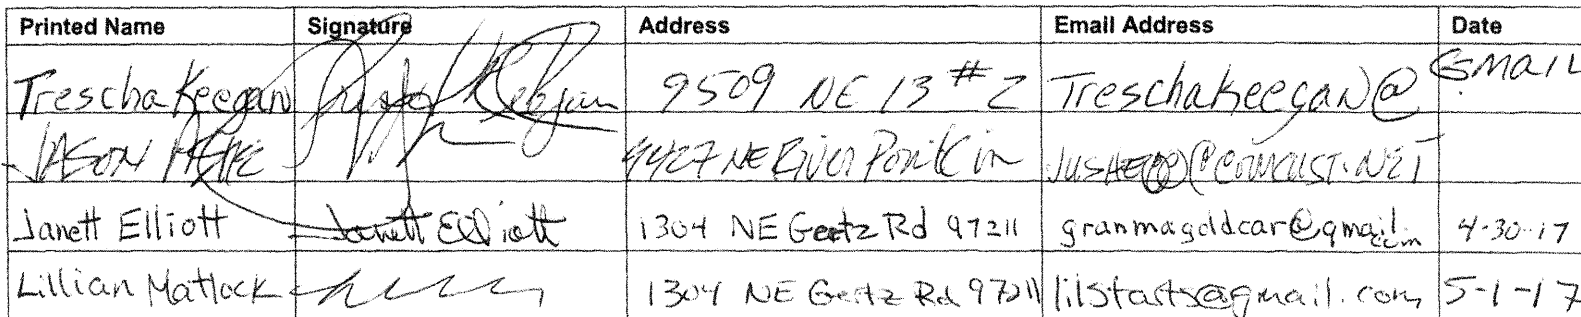 Printed Name Signature Address Email Address Date
Trescha Keegan 9509 NE 13 # 2 TreschaKeegaN@ GMAIL
JASON 9427 NE River Point Cir @COMCAST.NET
Janett Elliott Janett Elliott 1304 NE Gertz Rd 97211 granmagoldcar@gmail.com 4-30-17
Lillian Matlock 1304 NE Gertz Rd 97211 lilstarts@gmail.com 5-1-17